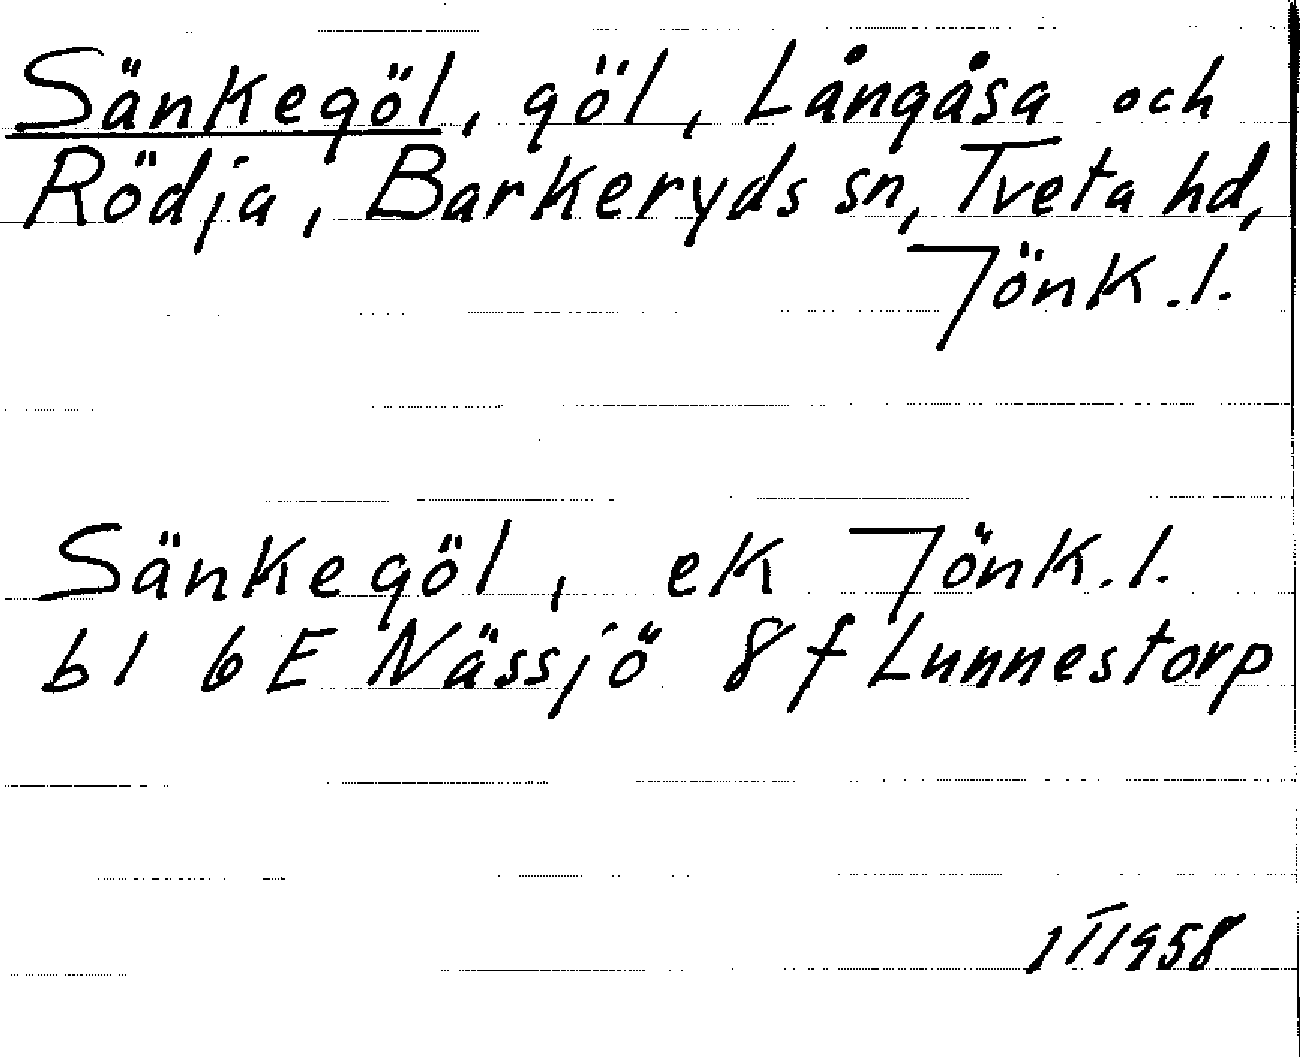 Sänkegöl, göl, Långåsa och
Rödja, Barkeryds sn, Tveta hd,
Jönk.l.
Sänkegöl, ek Jönk.l.
bl 6E Nässjö 8f Lunnestorp